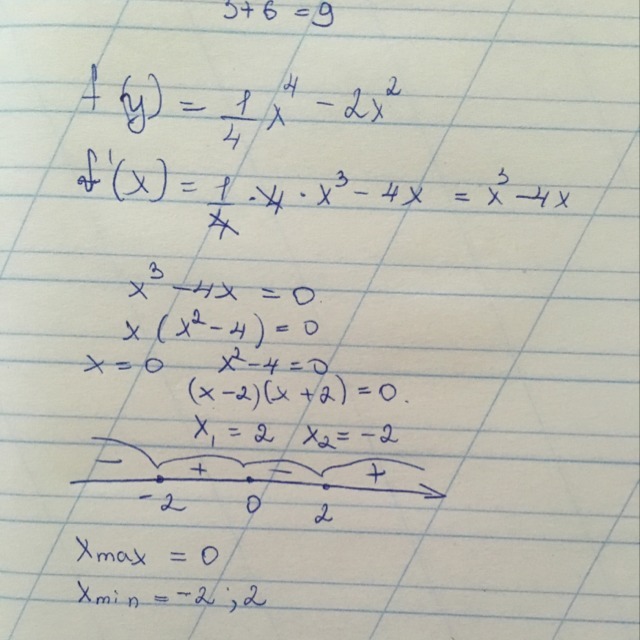 3+6 = 9
f(y) = 1/4 x⁴ - 2x²
f'(x) = 1/4 · 4 · x³ - 4x = x³ - 4x
x³ - 4x = 0.
x (x² - 4) = 0
x = 0 x² - 4 = 0
(x - 2)(x + 2) = 0.
x₁ = 2 x₂ = -2
- + - +
-2 0 2
xmax = 0
xmin = -2 ; 2